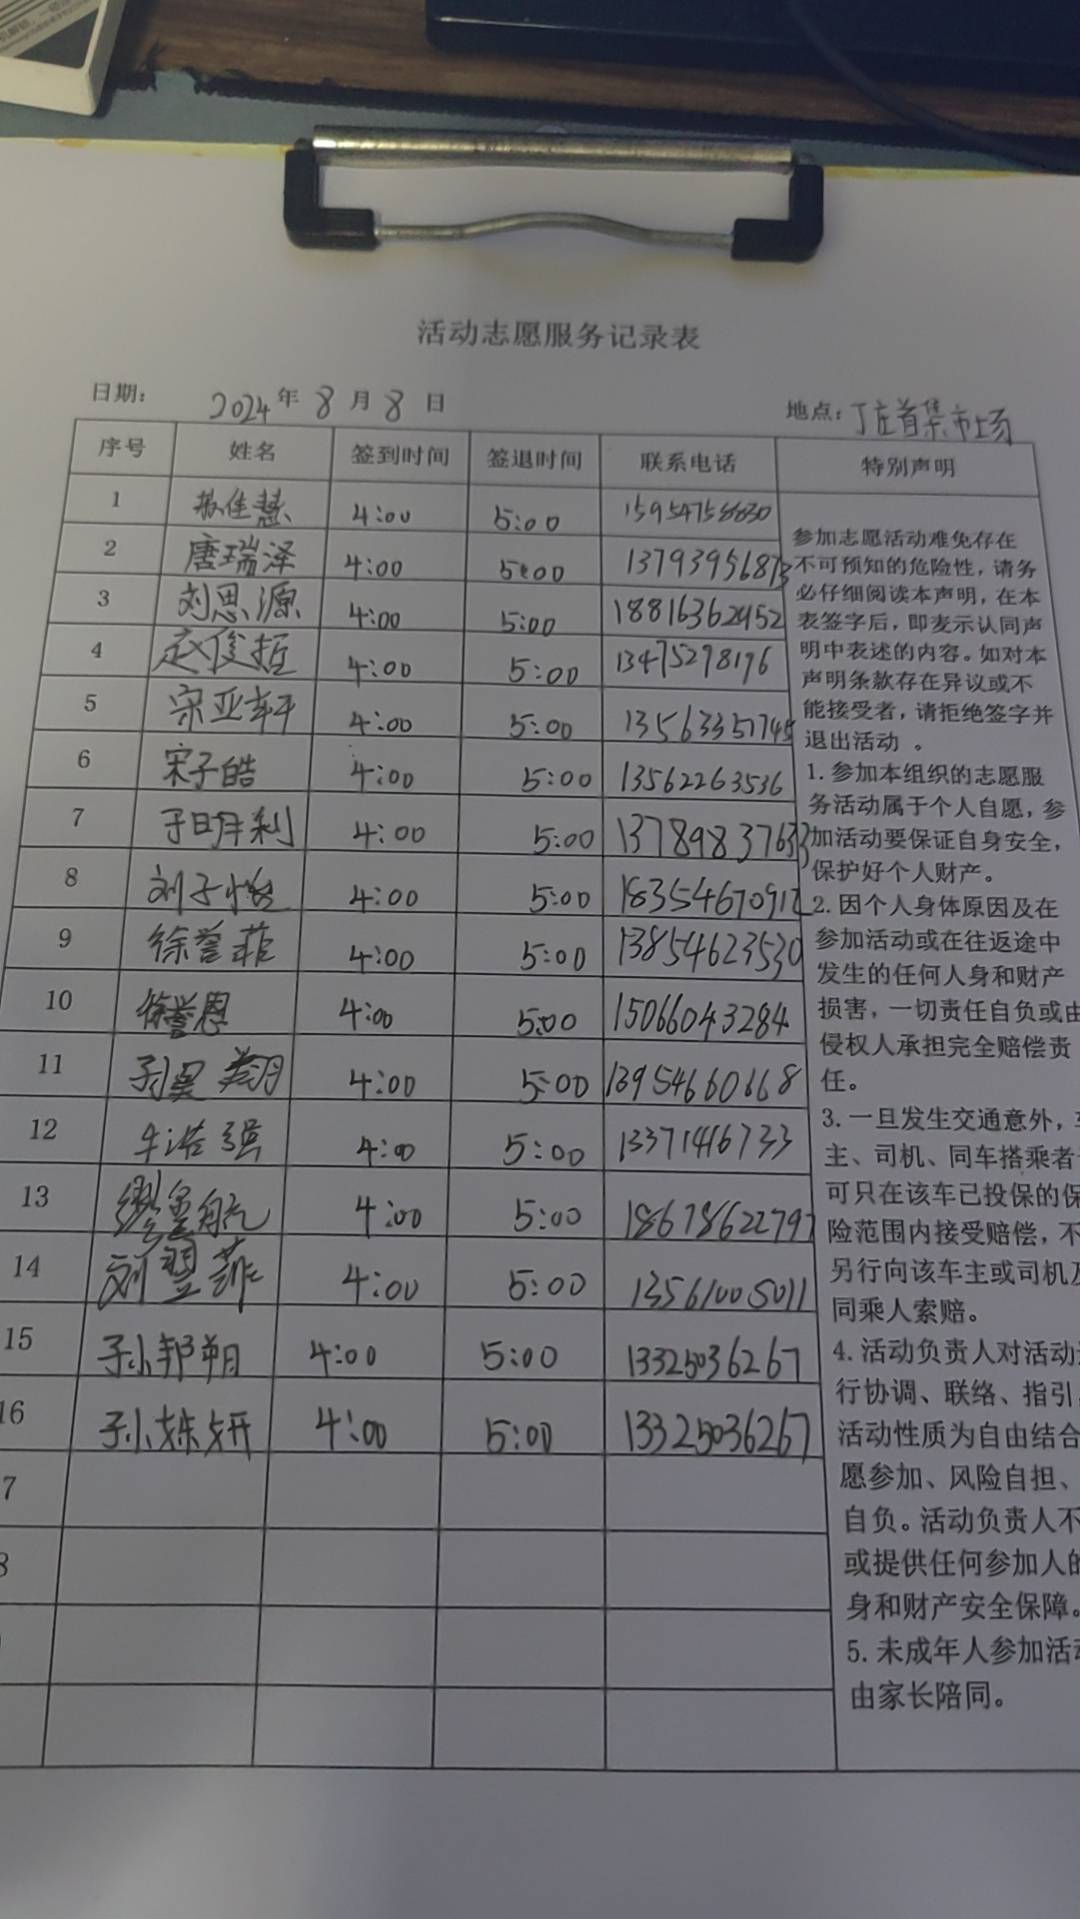 活动志愿服务记录表
日期： 2024 年 8 月 8 日 地点：丁庄首集市场
序号 姓名 签到时间 签退时间 联系电话 特别声明
1 佳慧 4:00 5:00 15954758830
2 唐瑞泽 4:00 5:00 13793956873
3 刘思源 4:00 5:00 18816362952
4 赵俊哲 4:00 5:00 13475298196
5 宋亚轩 4:00 5:00 13563351745
6 宋子皓 4:00 5:00 13562263536
7 于明利 4:00 5:00 13789837633
8 刘子悦 4:00 5:00 18354670912
9 徐誉菲 4:00 5:00 13854623530
10 徐誉恩 4:00 5:00 15066043284
11 孙昊翔 4:00 5:00 13954660668
12 牛浩强 4:00 5:00 13371416733
13 缪昱航 4:00 5:00 18678622797
14 刘翌菲 4:00 5:00 13561005011
15 孙邦朔 4:00 5:00 13325036267
16 孙姝妍 4:00 5:00 13325036267
7
8
参加志愿活动难免存在
不可预知的危险性，请务
必仔细阅读本声明，在本
表签字后，即表示认同声
明中表述的内容。如对本
声明条款存在异议或不
能接受者，请拒绝签字并
退出活动 。
1. 参加本组织的志愿服
务活动属于个人自愿，参
加活动要保证自身安全，
保护好个人财产。
2. 因个人身体原因及在
参加活动或在往返途中
发生的任何人身和财产
损害，一切责任自负或由
侵权人承担完全赔偿责
任。
3. 一旦发生交通意外，车
主、司机、同车搭乘者
可只在该车已投保的保
险范围内接受赔偿，不
另行向该车主或司机及
同乘人索赔。
4. 活动负责人对活动进
行协调、联络、指引
活动性质为自由结合
愿参加、风险自担、
自负。活动负责人不
或提供任何参加人的
身和财产安全保障。
5. 未成年人参加活动
由家长陪同。